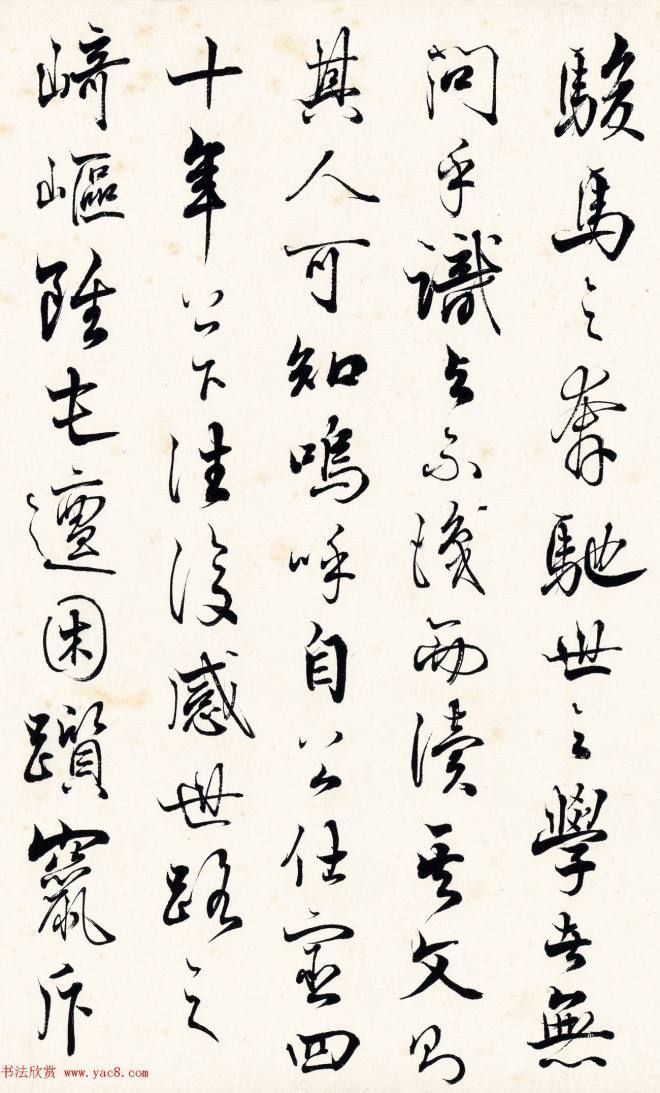 駿馬之奔馳世之學者無
問乎識与不識而讀其文則
其人可知嗚呼自公仕宦四
十年上下往復感世路之
崎嶇雖屯邅困躓竄斥
书法欣赏 www.yac8.com